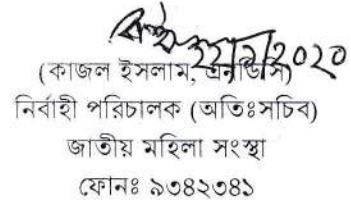 ২২/৯/২০২০
(কাজল ইসলাম, এনডিসি)
নির্বাহী পরিচালক (অতিঃসচিব)
জাতীয় মহিলা সংস্থা
ফোনঃ ৯৩৪২৩৪১